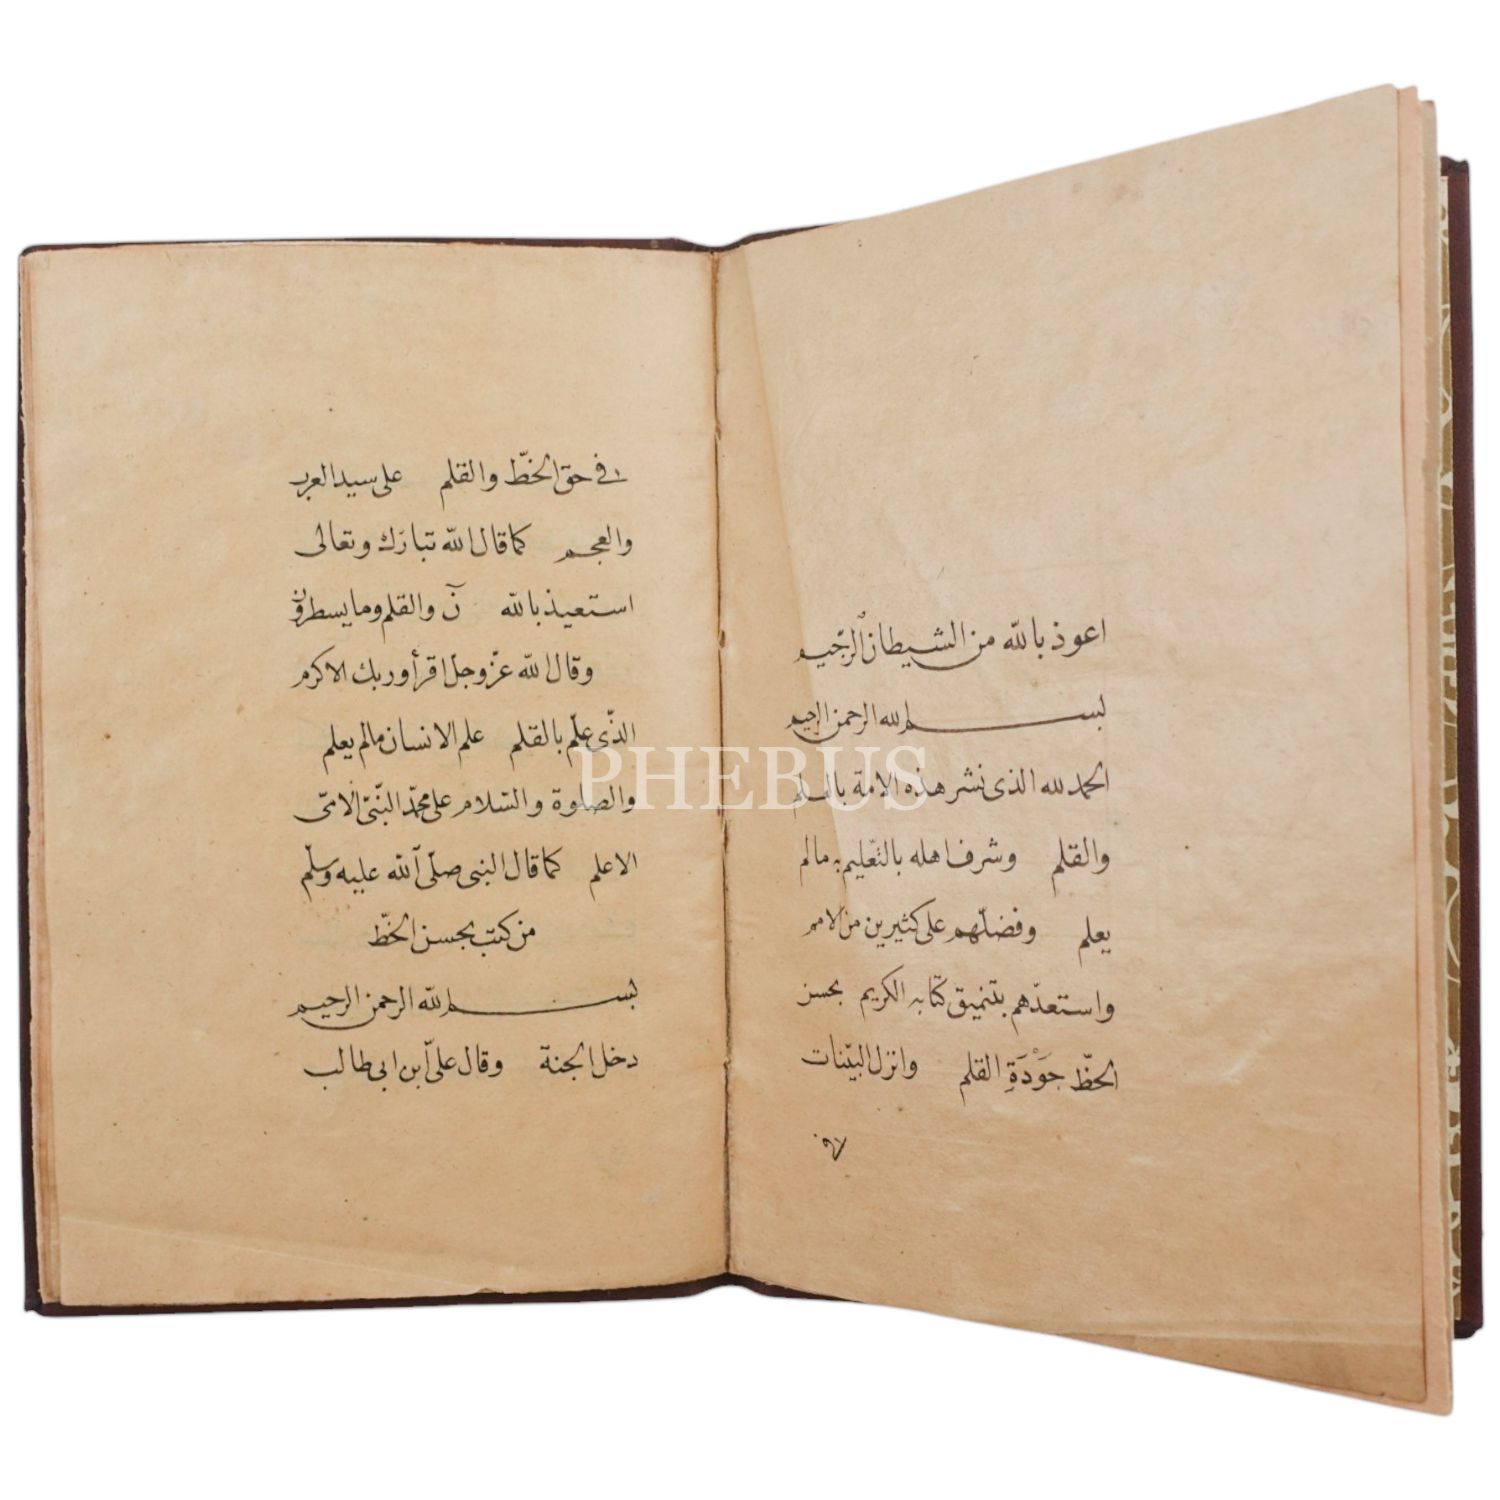 اعوذ بالله من الشيطان الرّجيم
بسم الله الرحمن الرحيم
الحمد لله الذى نشر هذه الامة بالسلم
والقلم وشرف اهله بالتّعليم به مالم
يعلم وفضلّهم على كثيرين من الامم
واستعدّهم بتنميق كتابه الكريم بحسن
الخطّ جَوْدَةِ القلم وانزل البيّنات
فى حق الخطّ والقلم على سيد العرب
والعجم كما قال الله تبارك وتعالى
استعيذ بالله نٓ والقلم وما يسطرون
وقال الله عزّ وجلّ اقرأ وربك الاكرم
الذّى علّم بالقلم علم الانسان مالم يعلم
والصلوة والسّلام على محمّد النّبىّ الامّى
الاعلم كما قال النبى صلّى الله عليه وسلّم
من كتب بحسن الخطّ
بسم الله الرحمن الرحيم
دخل الجنة وقال علىّ ابن ابى طالب
PHEBUS